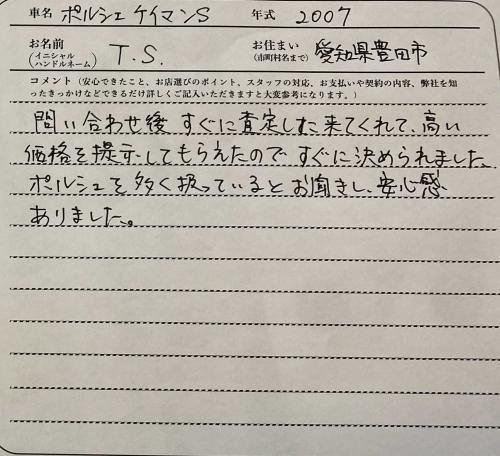 車名 ポルシェ ケイマンS 年式 2007
お名前 (イニシャル ハンドルネーム) T.S. お住まい (市町村名まで) 愛知県豊田市
コメント（安心できたこと、お店選びのポイント、スタッフの対応、お支払いや契約の内容、弊社を知
ったきっかけなどできるだけ詳しくご記入いただきますと大変参考になります。）
問い合わせ後 すぐに査定しに来てくれて、高い
価格を提示してもらえたので すぐに決められました。
ポルシェを多く扱っているとお聞きし、安心感
ありました。